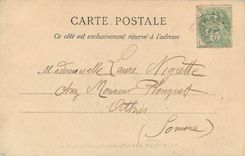 CARTE POSTALE
Ce côté est exclusivement réservé à l'adresse
Mademoiselle Laure
chez Monsieur
Athies
(Somme)